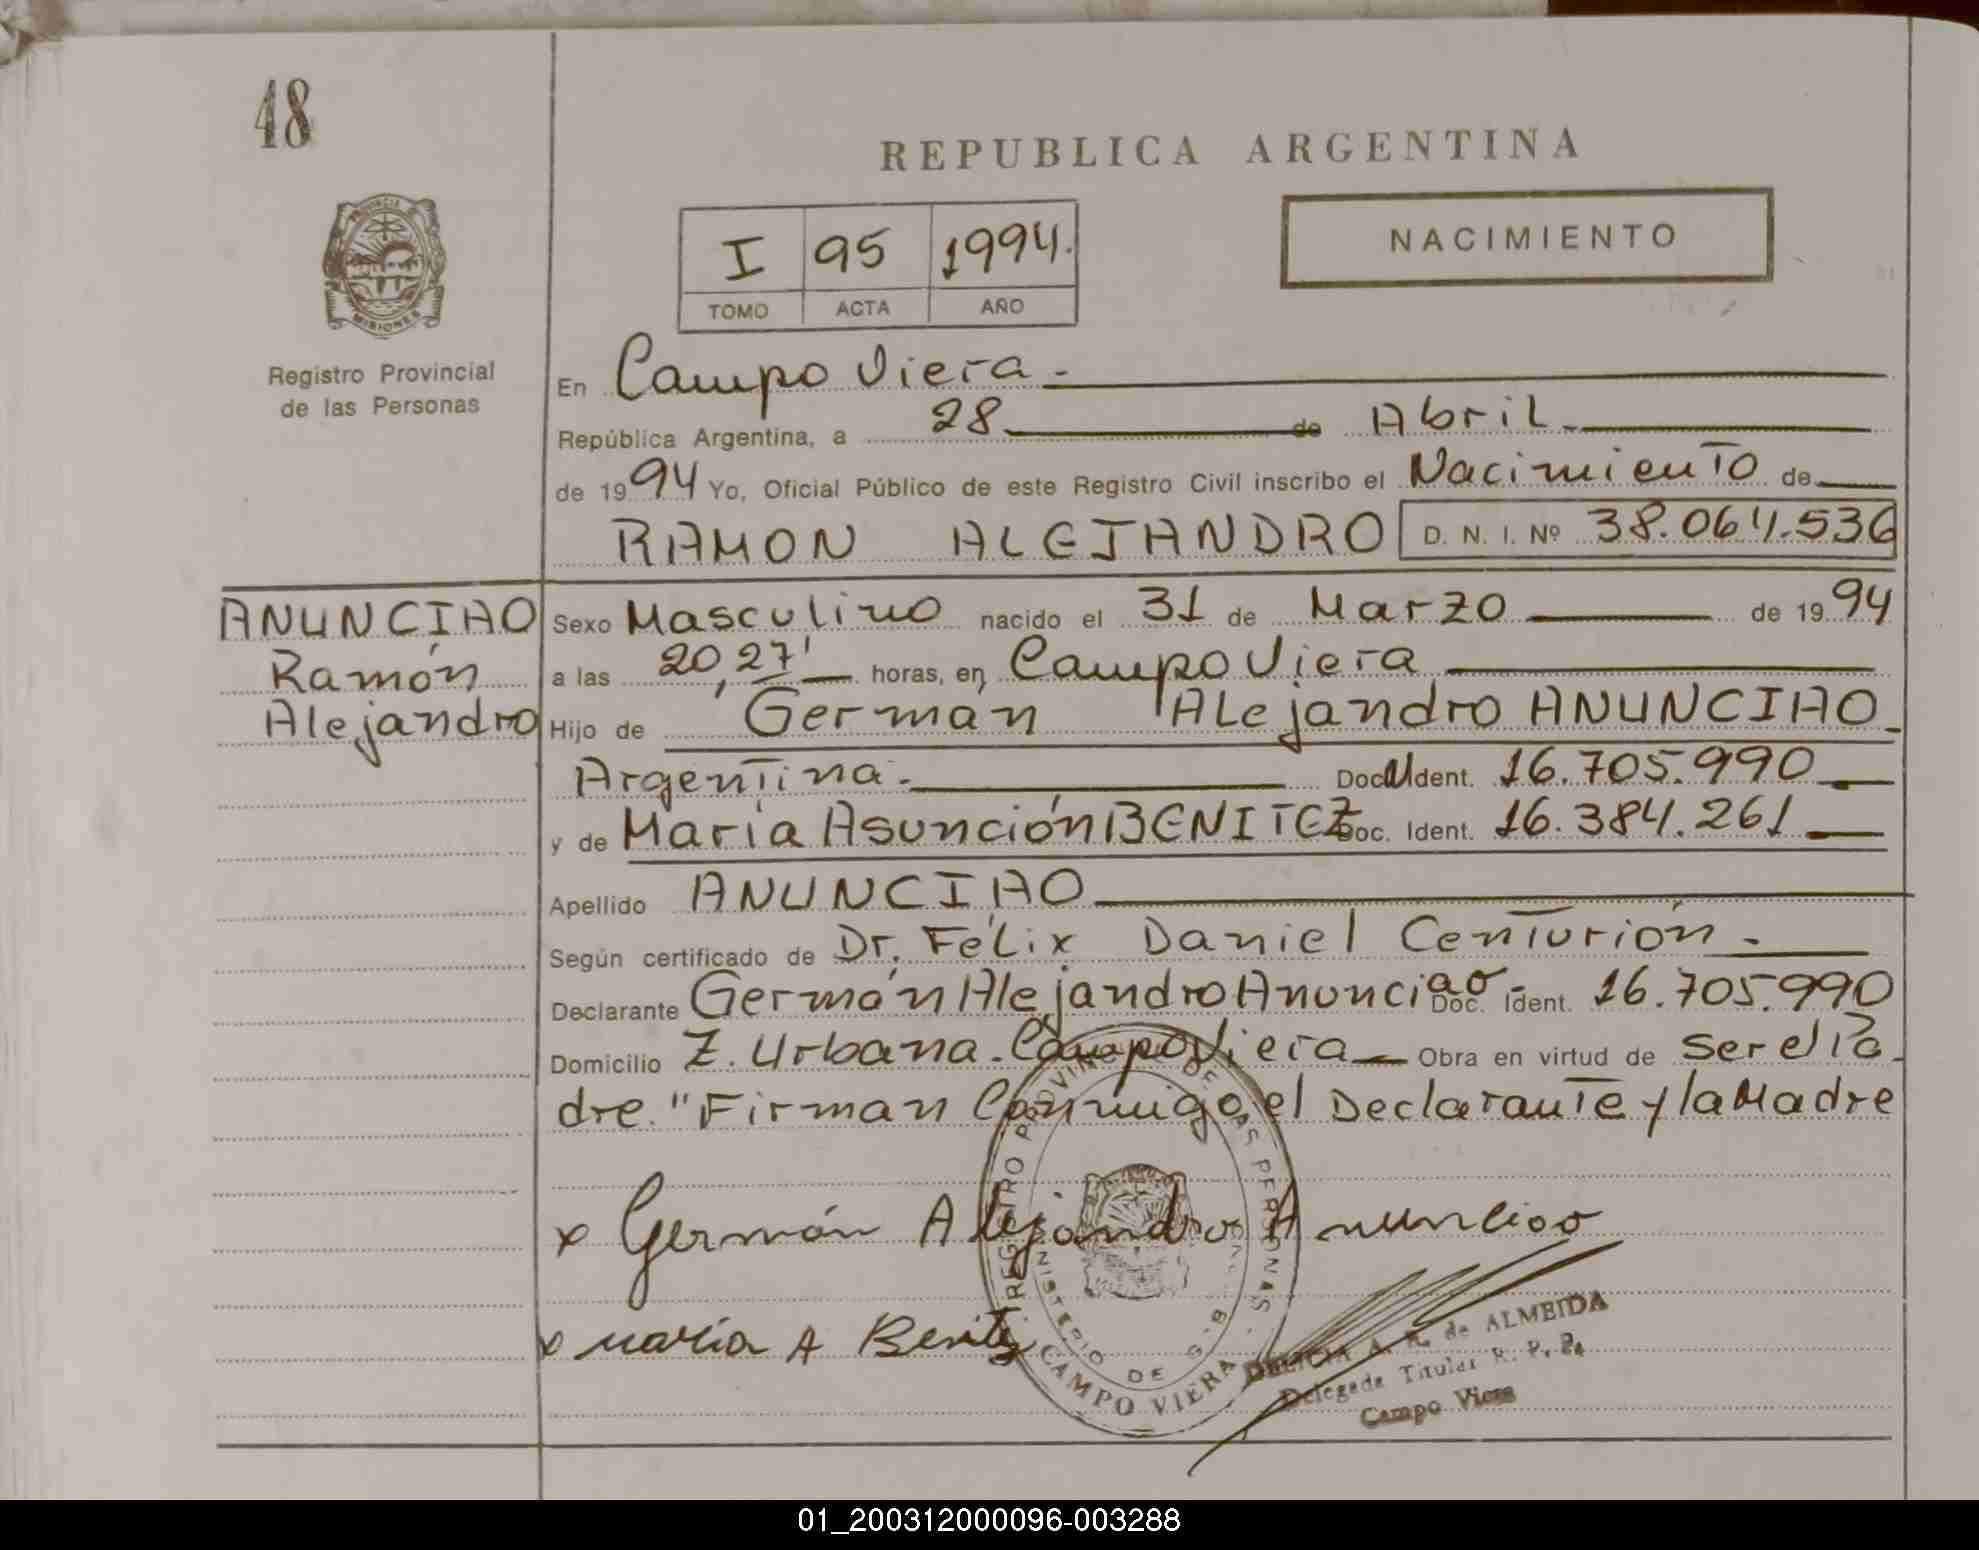 48
REPUBLICA ARGENTINA
PROVINCIA DE
MISIONES
I 95 1994.
TOMO ACTA AÑO
NACIMIENTO
Registro Provincial
de las Personas
En Campo Viera.
República Argentina, a 28 de Abril.
de 1994 Yo, Oficial Público de este Registro Civil inscribo el Nacimiento de
RAMON ALEJANDRO D. N. I. Nº 38.064.536
ANUNCIAO
Ramón
Alejandro
Sexo Masculino nacido el 31 de Marzo de 1994
a las 20,27' horas, en Campo Viera
Hijo de German ALejandro ANUNCIAO
Argentina. Doc. Ident. 16.705.990
y de María Asunción BENITEZ Doc. Ident. 16.384.261
Apellido ANUNCIAO
Según certificado de Dr. Félix Daniel Centurión.
Declarante Germán Alejandro Anunciao Doc. Ident. 16.705.990
Domicilio Z. Urbana. Campo Viera Obra en virtud de ser el Pa
dre. "Firman Conmigo, el Declarante y la Madre
x Germán Alejandro Anunciao
x maria A Benitez
REGISTRO PROVINCIAL DE LAS PERSONAS
MINISTERIO DE G.
CAMPO VIERA
DELICIA A. R. de ALMEIDA
Delegada Titular R. P. P.
Campo Viera
01_200312000096-003288